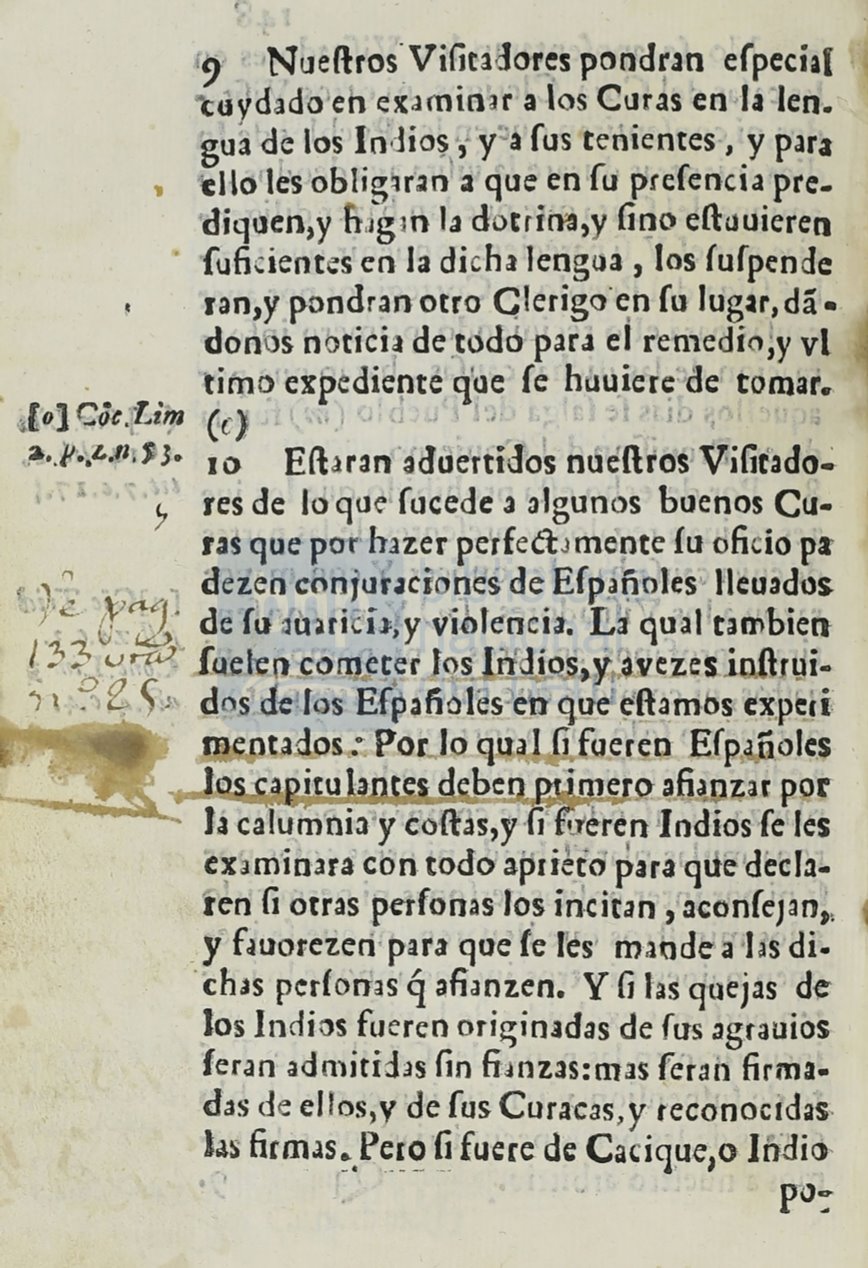 9 Nueſtros Viſitadores pondran eſpecial
cuydado en examinar a los Curas en la len-
gua de los Indios, y a ſus tenientes, y para
ello les obligaran a que en ſu preſencia pre-
diquen,y hagan la dotrina,y ſino eſtuuieren
ſuficientes en la dicha lengua, los ſuſpende
ran,y pondran otro Clerigo en ſu lugar, dã-
donos noticia de todo para el remedio,y vl
timo expediente que ſe huuiere de tomar.
[o] Cõc. Lim
2. p. 2. n. 53.
(c)
10 Eſtaran aduertidos nueſtros Viſitado-
res de lo que ſucede a algunos buenos Cu-
ras que por hazer perfectamente ſu oficio pa
dezen conjuraciones de Eſpañoles lleuados
de ſu auaricia,y violencia. La qual tambien
ſuelen cometer los Indios,y avezes inſtrui-
dos de los Eſpañoles en que eſtamos experi
mentados: Por lo qual ſi fueren Eſpañoles
los capitulantes deben primero afianzar por
la calumnia y coſtas,y ſi fueren Indios ſe les
examinara con todo aprieto para que decla-
ren ſi otras perſonas los incitan, aconſejan,
y fauorezen para que ſe les mande a las di-
chas perſonas q́ afianzen. Y ſi las quejas de
los Indios fueren originadas de ſus agrauios
ſeran admitidas ſin fianzas:mas ſeran firma-
das de ellos,y de ſus Curacas,y reconocidas
las firmas. Pero ſi fuere de Cacique,o Indio
po-
pag.
133
nº 25.